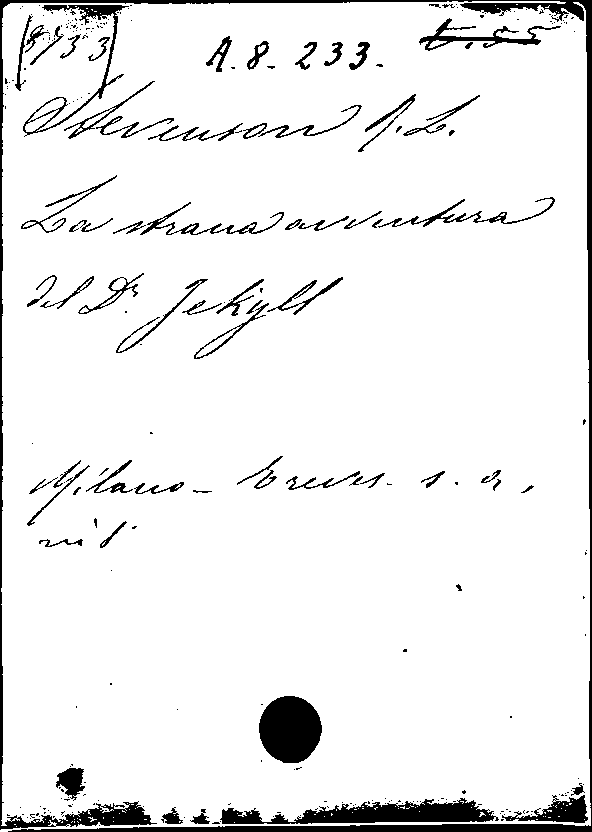 A. 8. 233.
Stevenson R. L.
La strana avventura
del Dr. Jekyll
Milano - Treves. s. a,